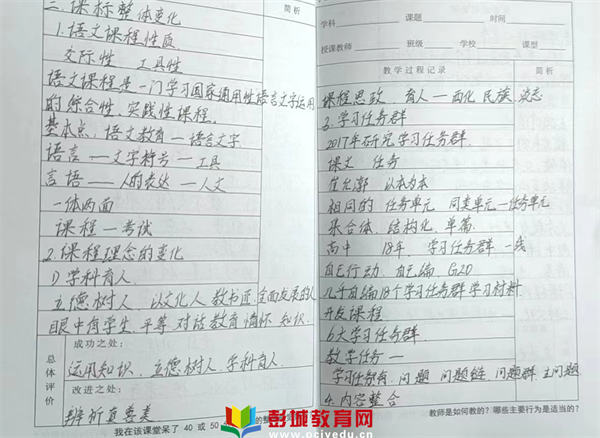 二.课标整体变化
简析
1.语文课程性质
交际性 工具性
语文课程是一门学习国家通用性语言文字运用
的综合性、实践性课程。
基本点:语文教育—语言文字
语言——文字符号—工具
言语——人的表达—人文
一体两面
课程—考试
2.课程理念的变化
1)学科育人
立德树人 以文化人 教书还全面发展的人
眼中有学生.平等.对话教育情怀.知识.
总体评价
成功之处:
运用知识.立德树人.学科育人.
改进之处:
辨析真善美
我在该课堂呆了 40 或 50
学科 课题 时间
授课教师 班级 学校 课型
教学过程记录 简析
课程思政 育人—西化 民族
3.学习任务群
2017年研究学习任务群
课文 任务
崔允漷 以本为本
相同的任务单元 同类单元—任务单元
集合体.结构化.单篇.
高中 18年.学习任务群一线
自己行动.自己编.G20
几千自编18个学习任务群学习材料
开发课程
6大学习任务群.
教学任务—
学习任务有.问题 问题链.问题群.主问题
4.内容整合
教师是如何教的?哪些主要行为是适当的?
彭城教育网
www.pcjyedu.cn